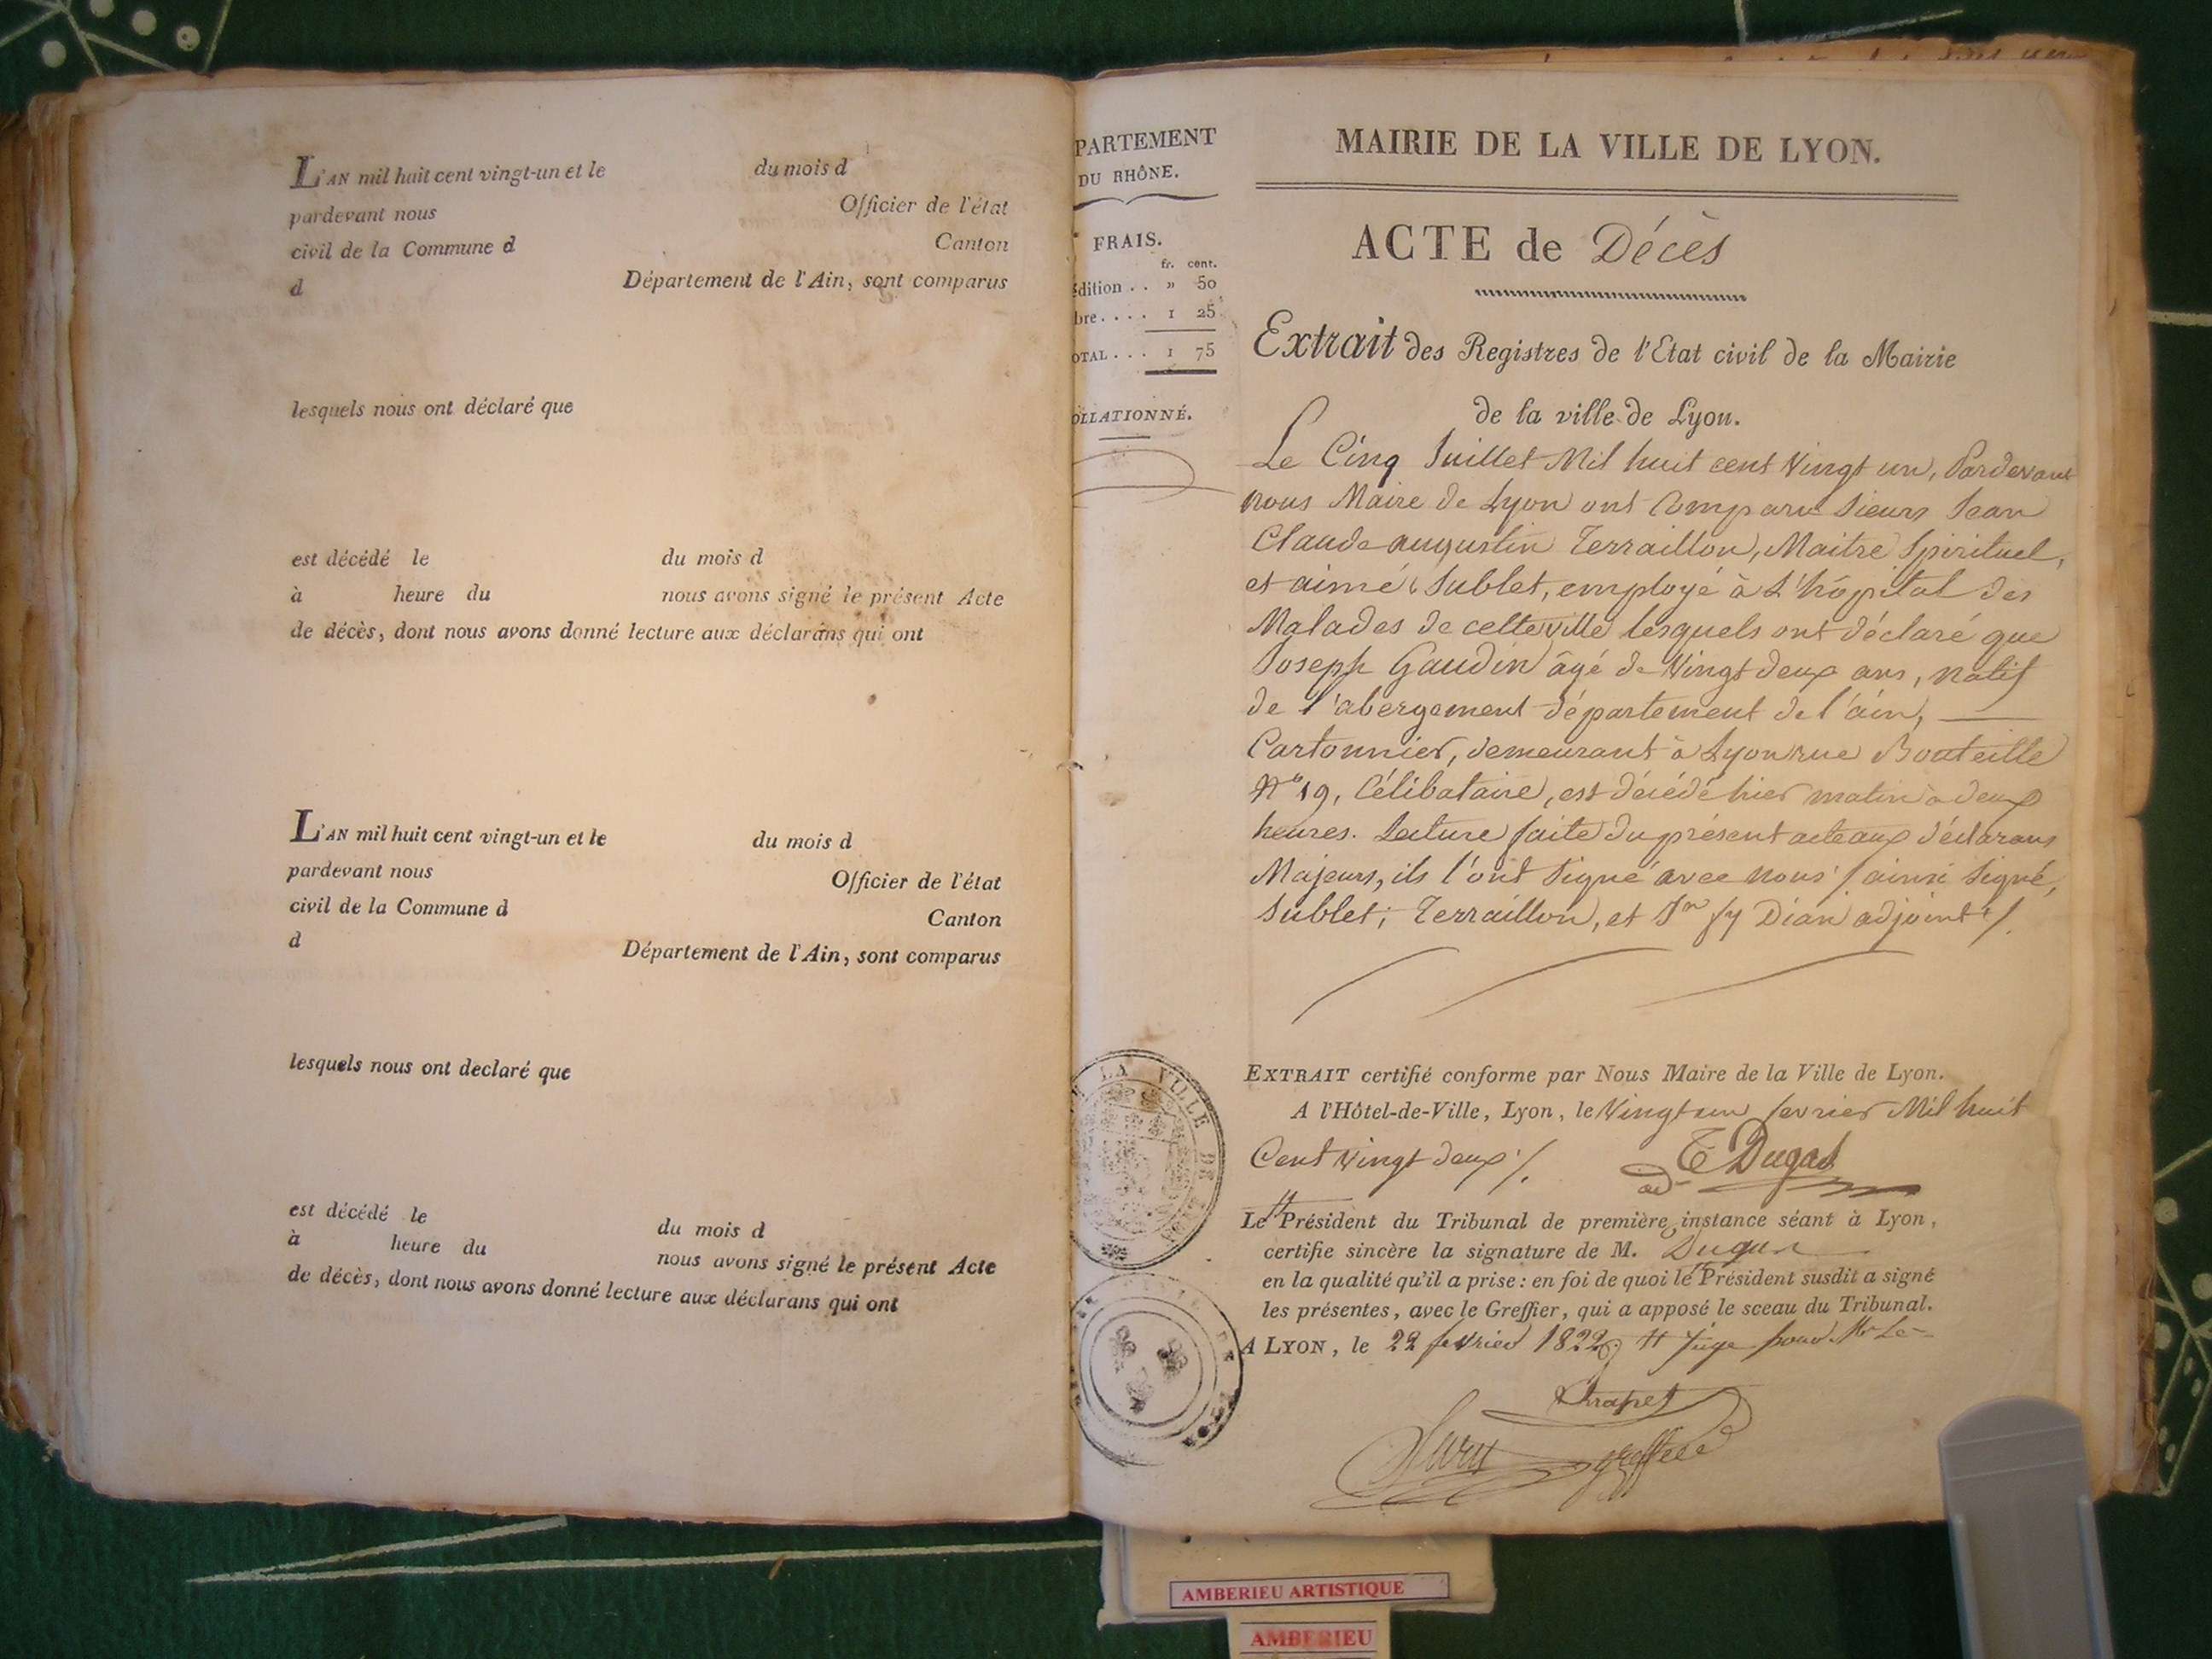 L'AN mil huit cent vingt-un et le du mois d
pardevant nous Officier de l'état
civil de la Commune d Canton
d Département de l'Ain, sont comparus
lesquels nous ont déclaré que
est décédé le du mois d
à heure du nous avons signé le présent Acte
de décès, dont nous avons donné lecture aux déclarans qui ont
L'AN mil huit cent vingt-un et le du mois d
pardevant nous Officier de l'état
civil de la Commune d Canton
d Département de l'Ain, sont comparus
lesquels nous ont declaré que
est décédé le du mois d
à heure du nous avons signé le présent Acte
de décès, dont nous avons donné lecture aux déclarans qui ont
PARTEMENT
DU RHÔNE.
FRAIS.
fr. cent.
édition . . » 50
bre . . . . 1 25
OTAL . . . 1 75
OLLATIONNÉ.
MAIRIE DE LA VILLE DE LYON.
ACTE de Décès
Extrait des Registres de l'Etat civil de la Mairie
de la ville de Lyon.
Le Cinq Juillet Mil huit cent Vingt un, Pardevant
nous Maire de Lyon ont Comparu Sieurs Jean
Claude augustin Terraillon, Maitre Spirituel,
et aimé Sublet, employé à L'hôpital des
Malades de cette ville lesquels ont déclaré que
Joseph Gaudin âgé de Vingt deux ans, natif
de l'abergement département de l'ain,
Cartonnier, demeurant à Lyon rue Bouteille
N° 19, Célibataire, est décédé hier matin à deux
heures. Lecture faite du présent acte aux déclarans
Majeurs, ils l'ont Signé avec nous / ainsi Signé,
Sublet, Terraillon, et Jn fy Dian adjoint /.
EXTRAIT certifié conforme par Nous Maire de la Ville de Lyon.
A l'Hôtel-de-Ville, Lyon, le Vingt un fevrier Mil huit
Cent Vingt deux /.
T Dugas
ad
LA VILLE DE
Le Président du Tribunal de première instance séant à Lyon,
certifie sincère la signature de M. Dugas
en la qualité qu'il a prise : en foi de quoi le Président susdit a signé
les présentes, avec le Greffier, qui a apposé le sceau du Tribunal.
A LYON, le 22 fevrier 1822 # Juge pour Mr Le
greffier
AMBERIEU ARTISTIQUE
AMBERIEU